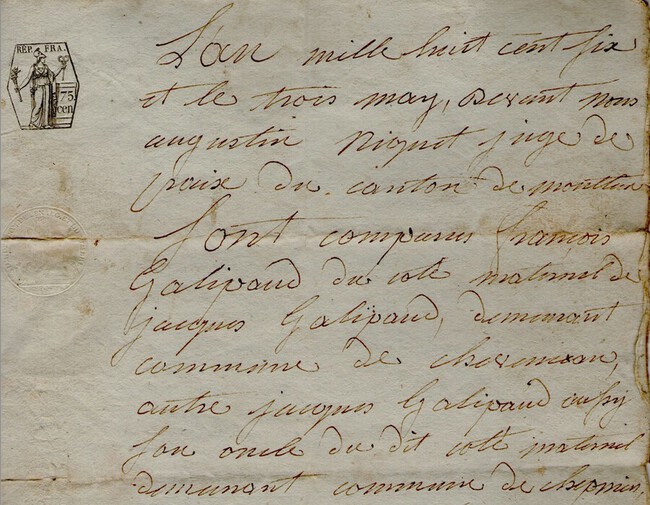 RÉP. FRA.
75
cen
L'an mille huit cent six
et le trois may, devant nous
augustin Niquet juge de
paix du canton de
Sont comparus françois
Galipaud du coté maternel de
jacques Galipaud, demeurant
commune de
autre jacques Galipaud aussy
son oncle du dit coté maternel
demeurant commune de